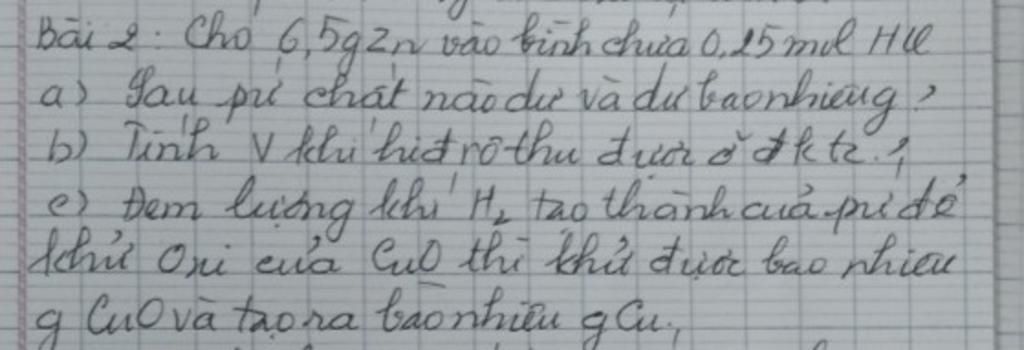 Bài 2: Cho 6,5g Zn vào bình chứa 0,25 mol HCl
a) Sau pứ chất nào dư và dư bao nhiêu g?
b) Tính V khí hiđrô thu được ở đktc?
c) Đem lượng khí H₂ tạo thành của pứ để
khử Oxi của CuO thì khử được bao nhiêu
g CuO và tạo ra bao nhiêu g Cu.